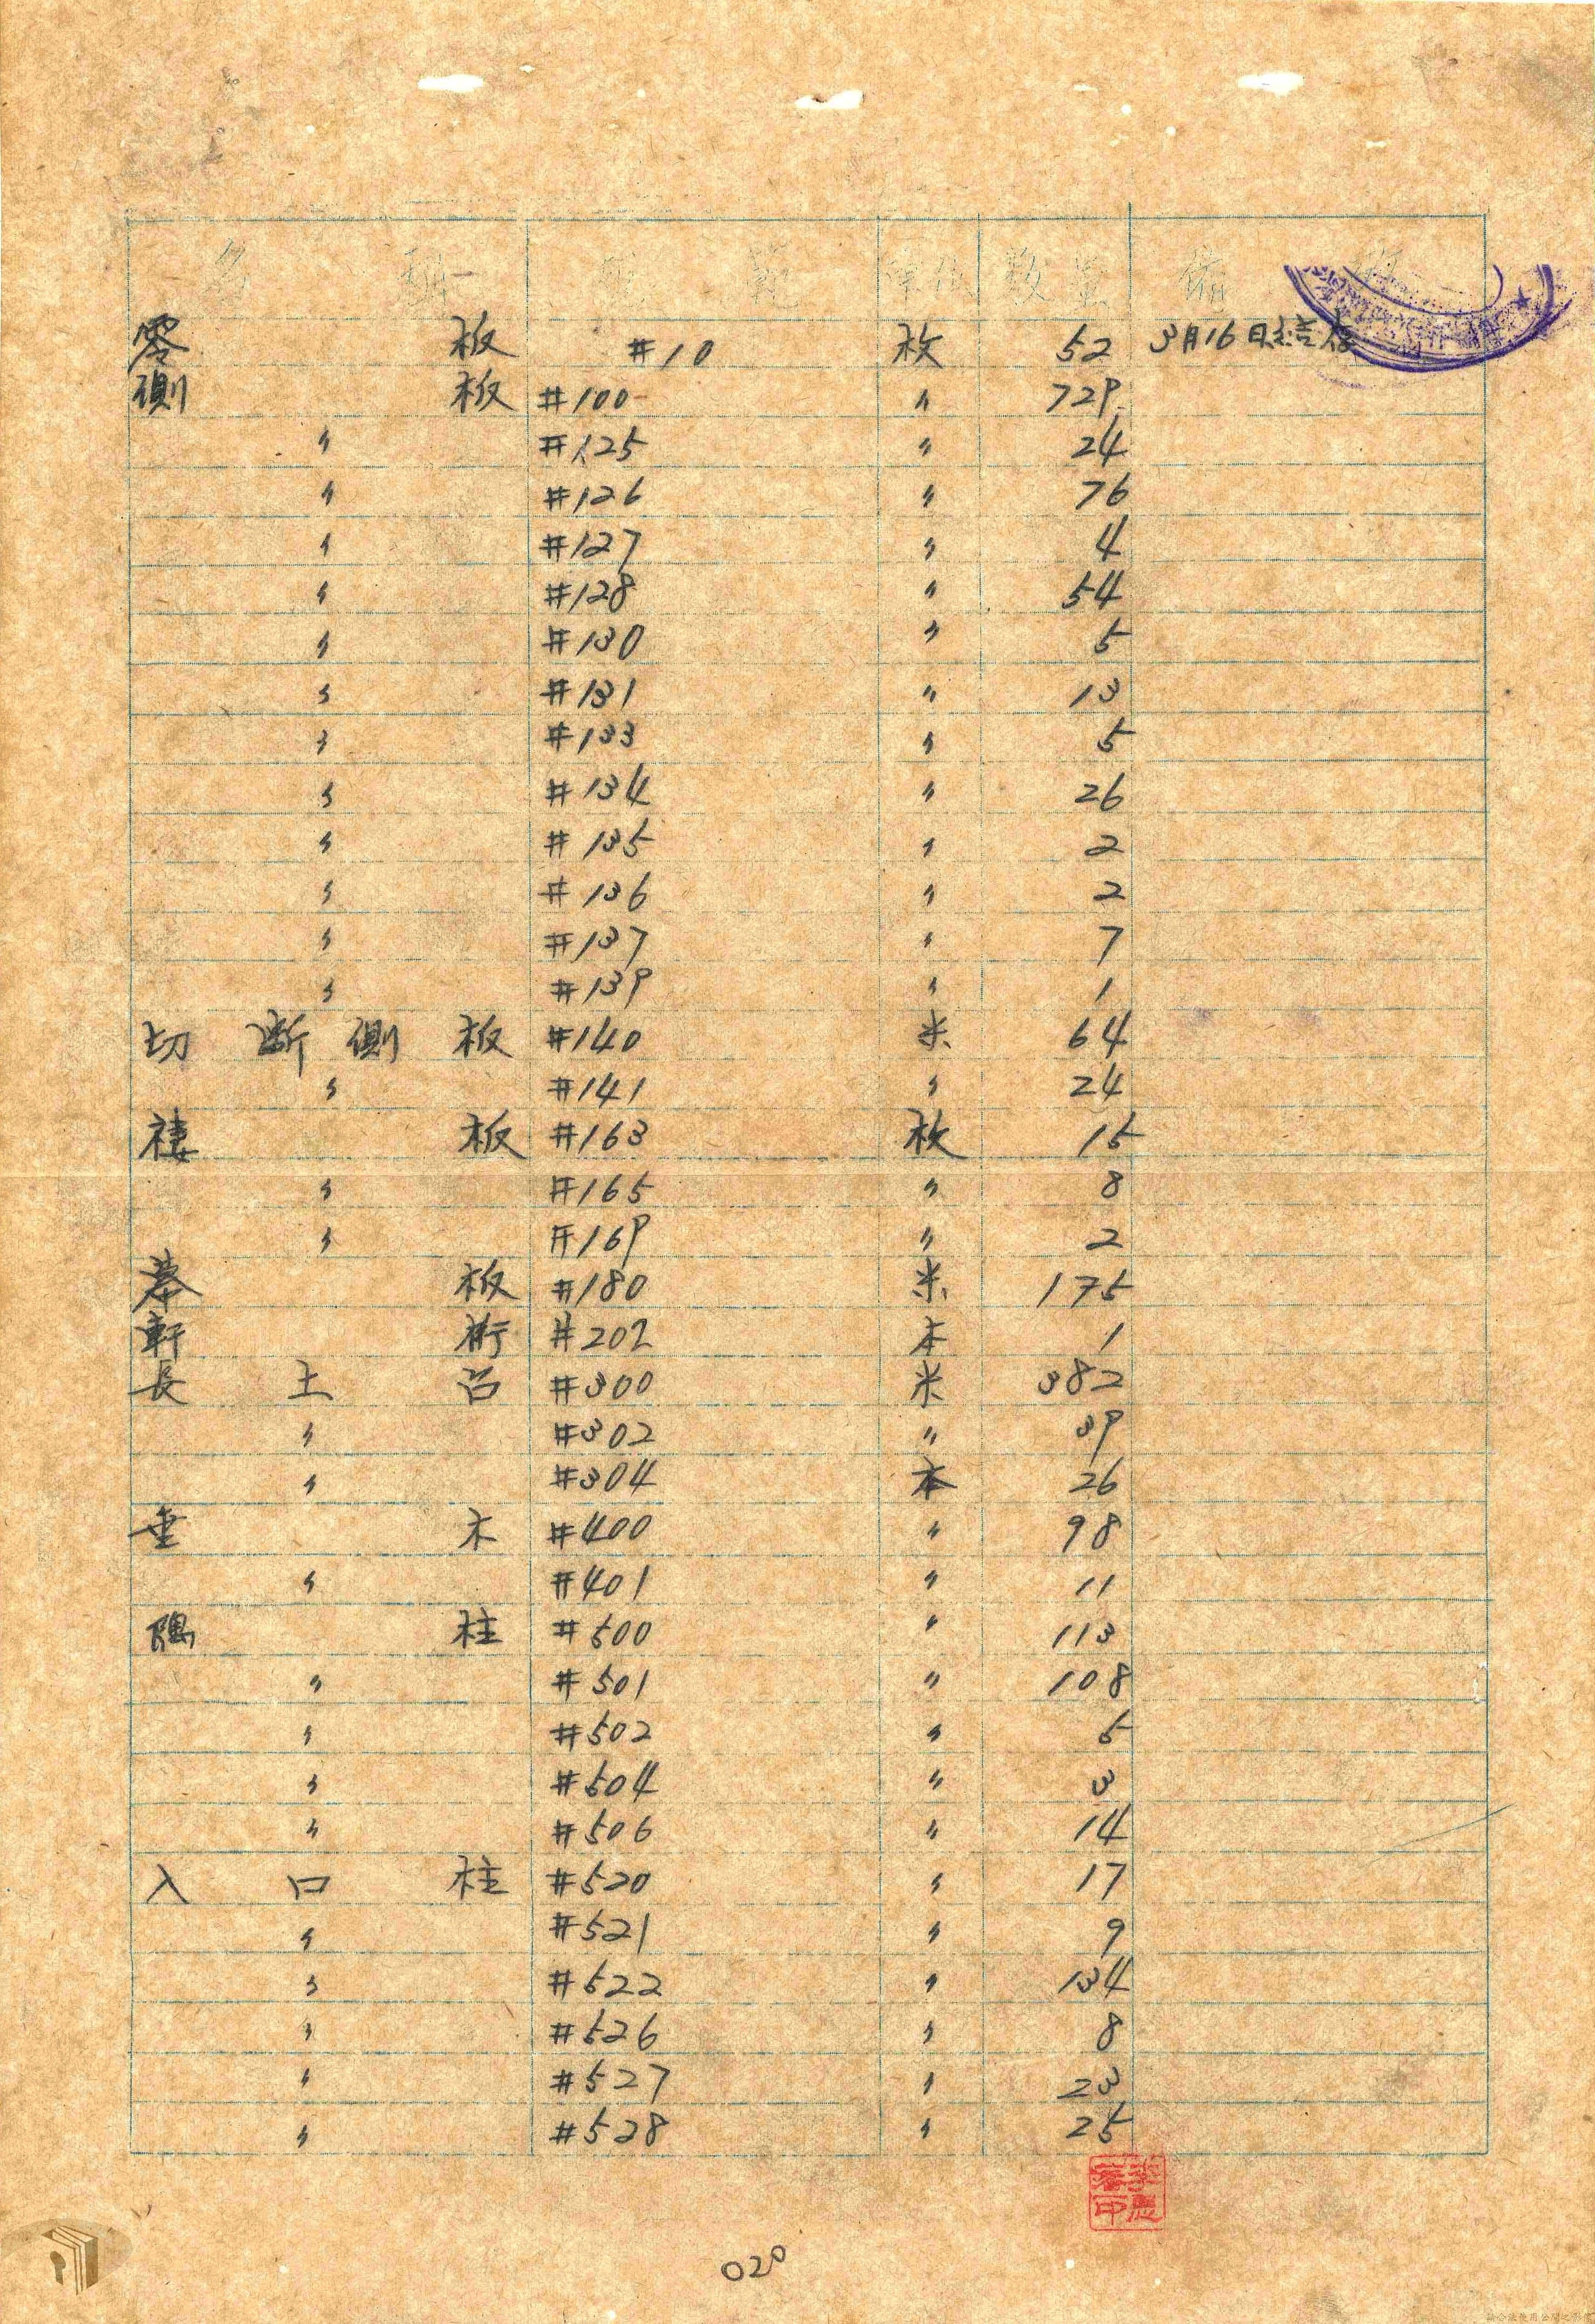 名稱 規範 單位 數量 備
零板 #10 枚 52 3月16日結存
側板 #100 〃 729
〃 #125 〃 24
〃 #126 〃 76
〃 #127 〃 4
〃 #128 〃 54
〃 #130 〃 5
〃 #131 〃 13
〃 #133 〃 5
〃 #134 〃 26
〃 #135 〃 2
〃 #136 〃 2
〃 #137 〃 7
〃 #139 〃 1
切断側板 #140 米 64
〃 #141 〃 24
褄板 #163 枚 15
〃 #165 〃 8
〃 #169 〃 2
幕板 #180 米 175
軒桁 #202 本 1
長土台 #300 米 382
〃 #302 〃 39
〃 #304 本 26
垂木 #400 〃 98
〃 #401 〃 11
隅柱 #500 〃 113
〃 #501 〃 108
〃 #502 〃 5
〃 #504 〃 3
〃 #506 〃 14
入口柱 #520 〃 17
〃 #521 〃 9
〃 #522 〃 134
〃 #526 〃 8
〃 #527 〃 23
〃 #528 〃 25
020